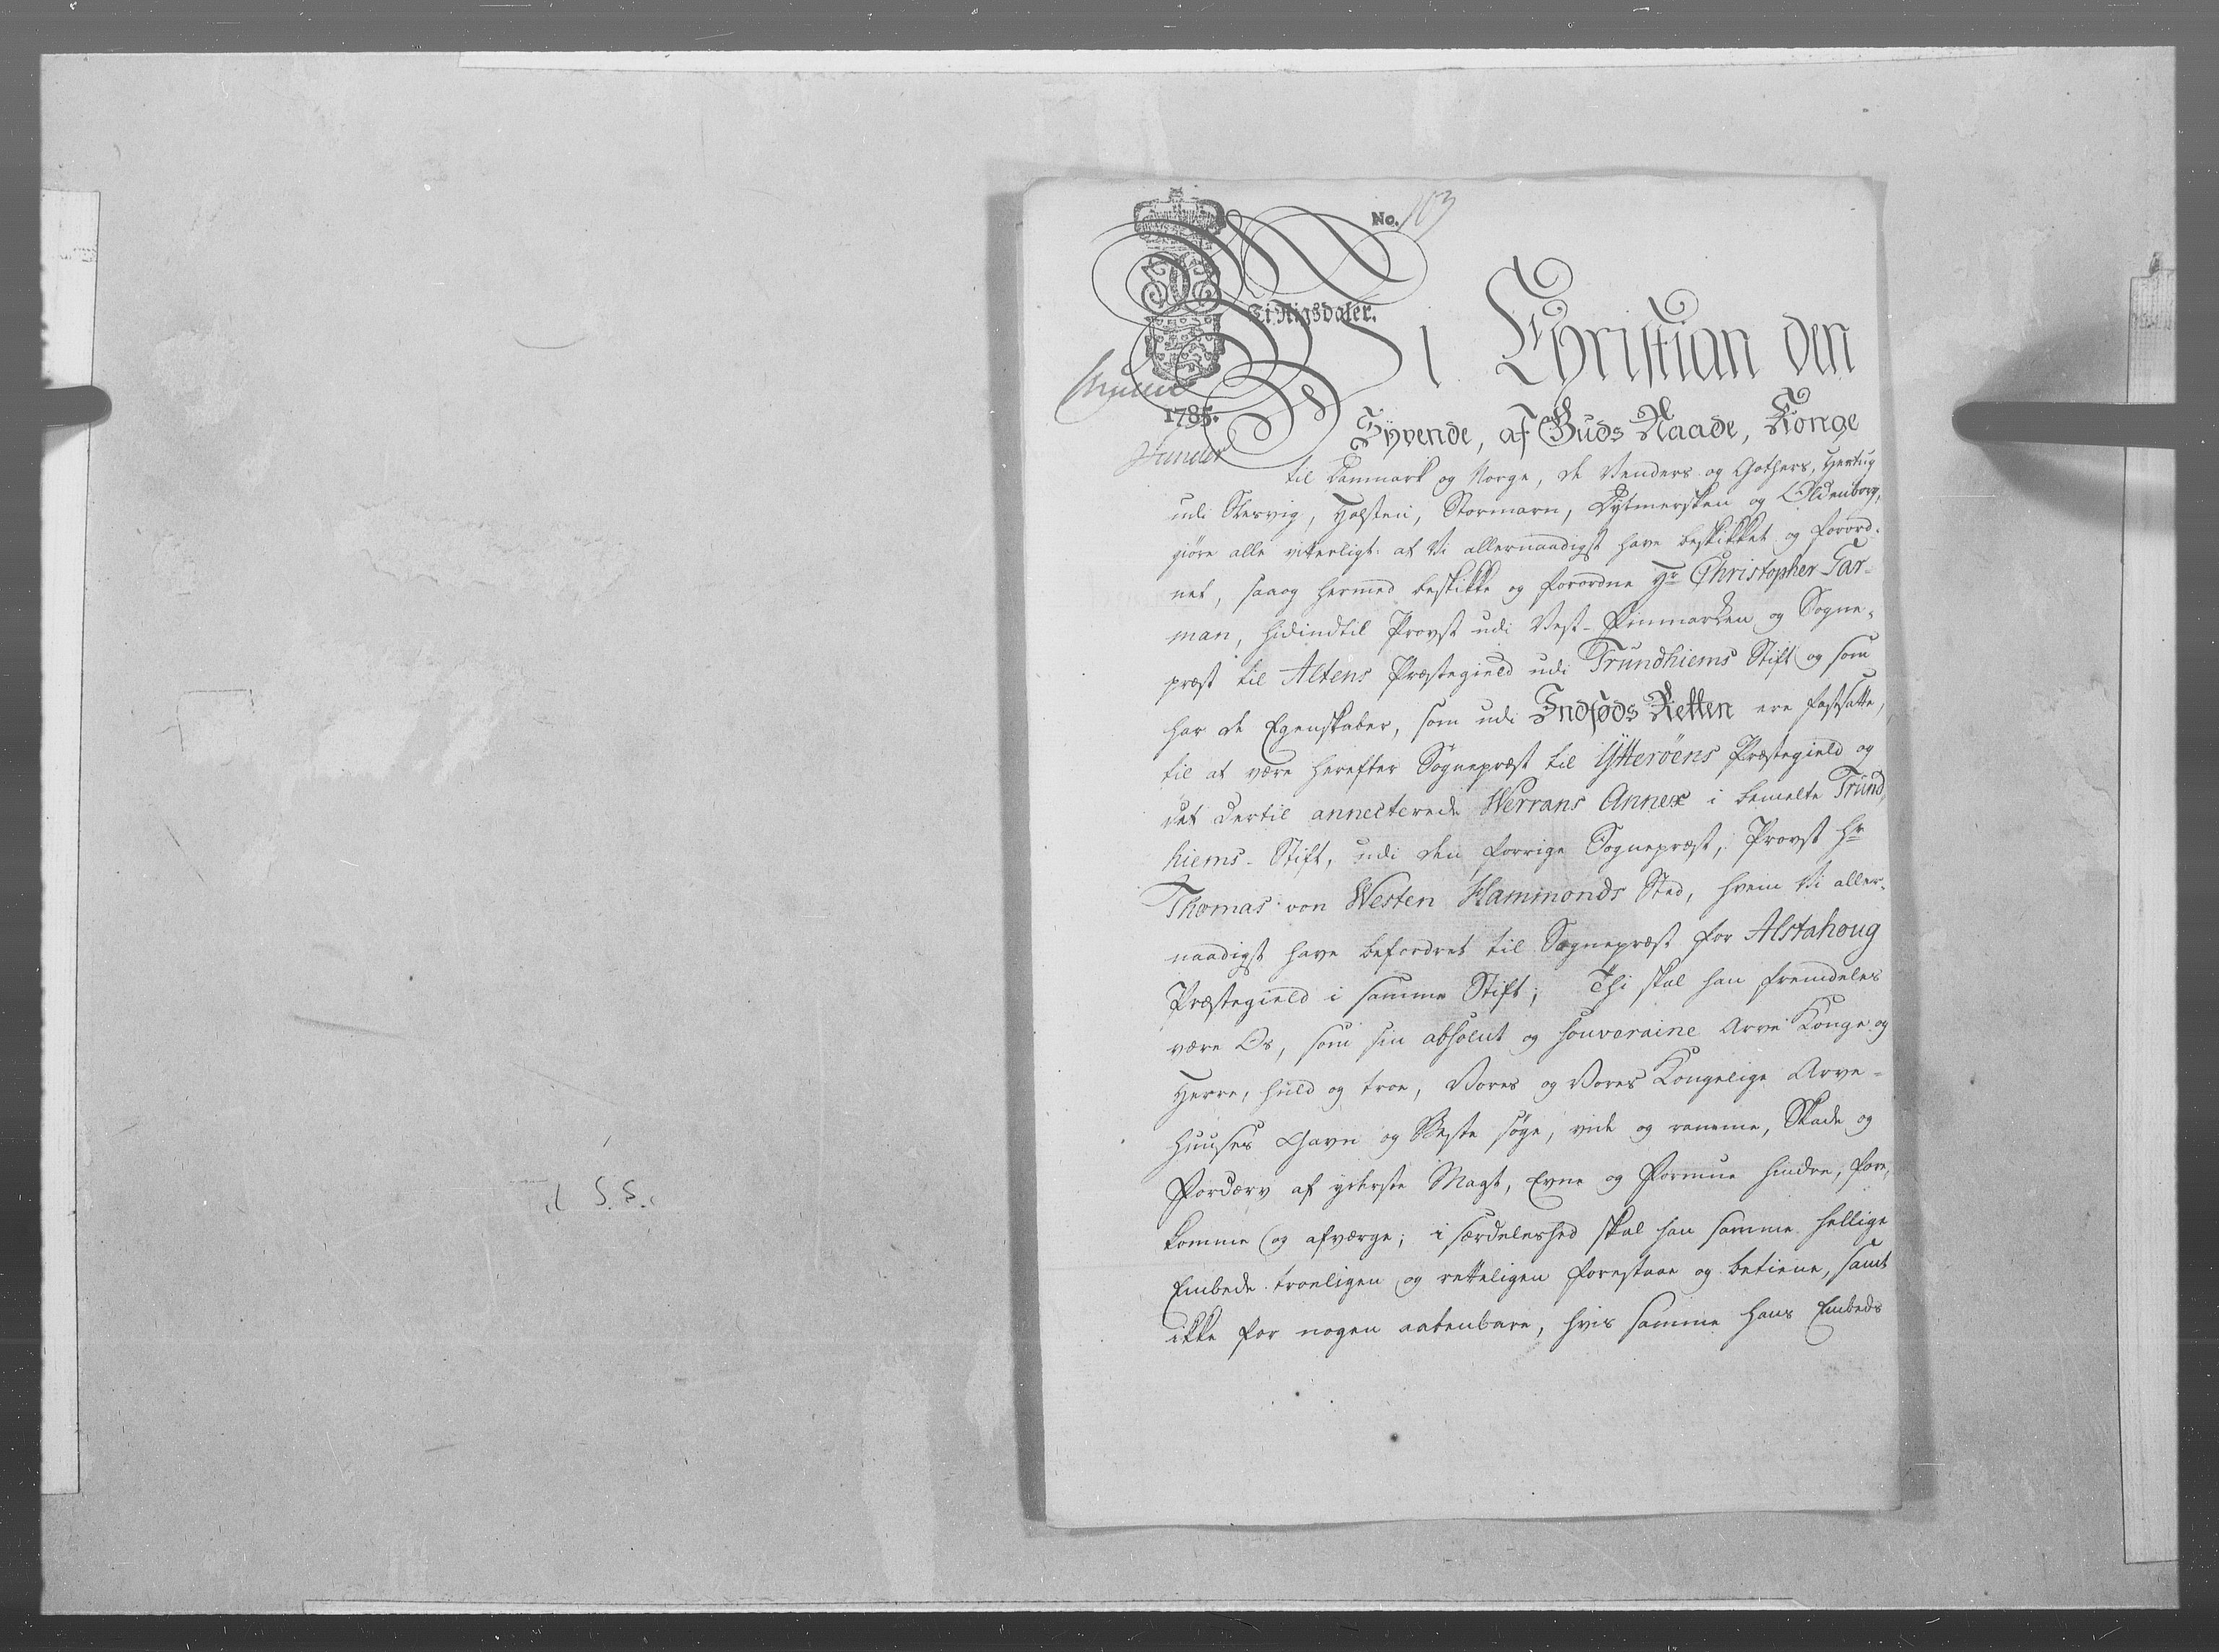 No. 103
Ti Rigsdaler.
1785.
Vi Christian den
Syvende, af Guds Naade, Konge
til Danmark og Norge, de Venders og Gothers, Hertug
udi Slesvig, Holsten, Stormarn, Dytmersken og Oldenborg,
giøre alle vitterligt: at Vi allernaadigst have beskikket og forord-
net, saaog hermed beskikke og forordne Hr Christopher Tar-
man, hidindtil Provst udi Vest-Finmarken og Sogne-
præst til Altens Præstegield udi Trundhiems Stift og som
har de Egenskaber, som udi Indføds Retten ere fastsatte,
til at være herefter Sognepræst til Ytterøens Præstegield og
det dertil annecterede Werrans Annex i bemelte Trund-
hiems-Stift, udi den forrige Sognepræst, Provst Hr
Thomas von Westen Hammonds Sted, hvem Vi aller-
naadigst have befordret til Sognepræst for Alstahoug
Præstegield i samme Stift; Thi skal han fremdeles
være Os, som sin absolut og souveraine Arve Konge og
Herre, huld og troe, Vores og Vores Kongelige Arve-
Huuses Gavn og Beste søge, vide og ramme, Skade og
Fordærv af yderste Magt, Evne og Formue hindre, fore-
komme og afværge; i særdeleshed skal han samme hellige
Embede troeligen og retteligen forestaae og betiene, samt
ikke for nogen aabenbare, hvis samme Hans Embeds